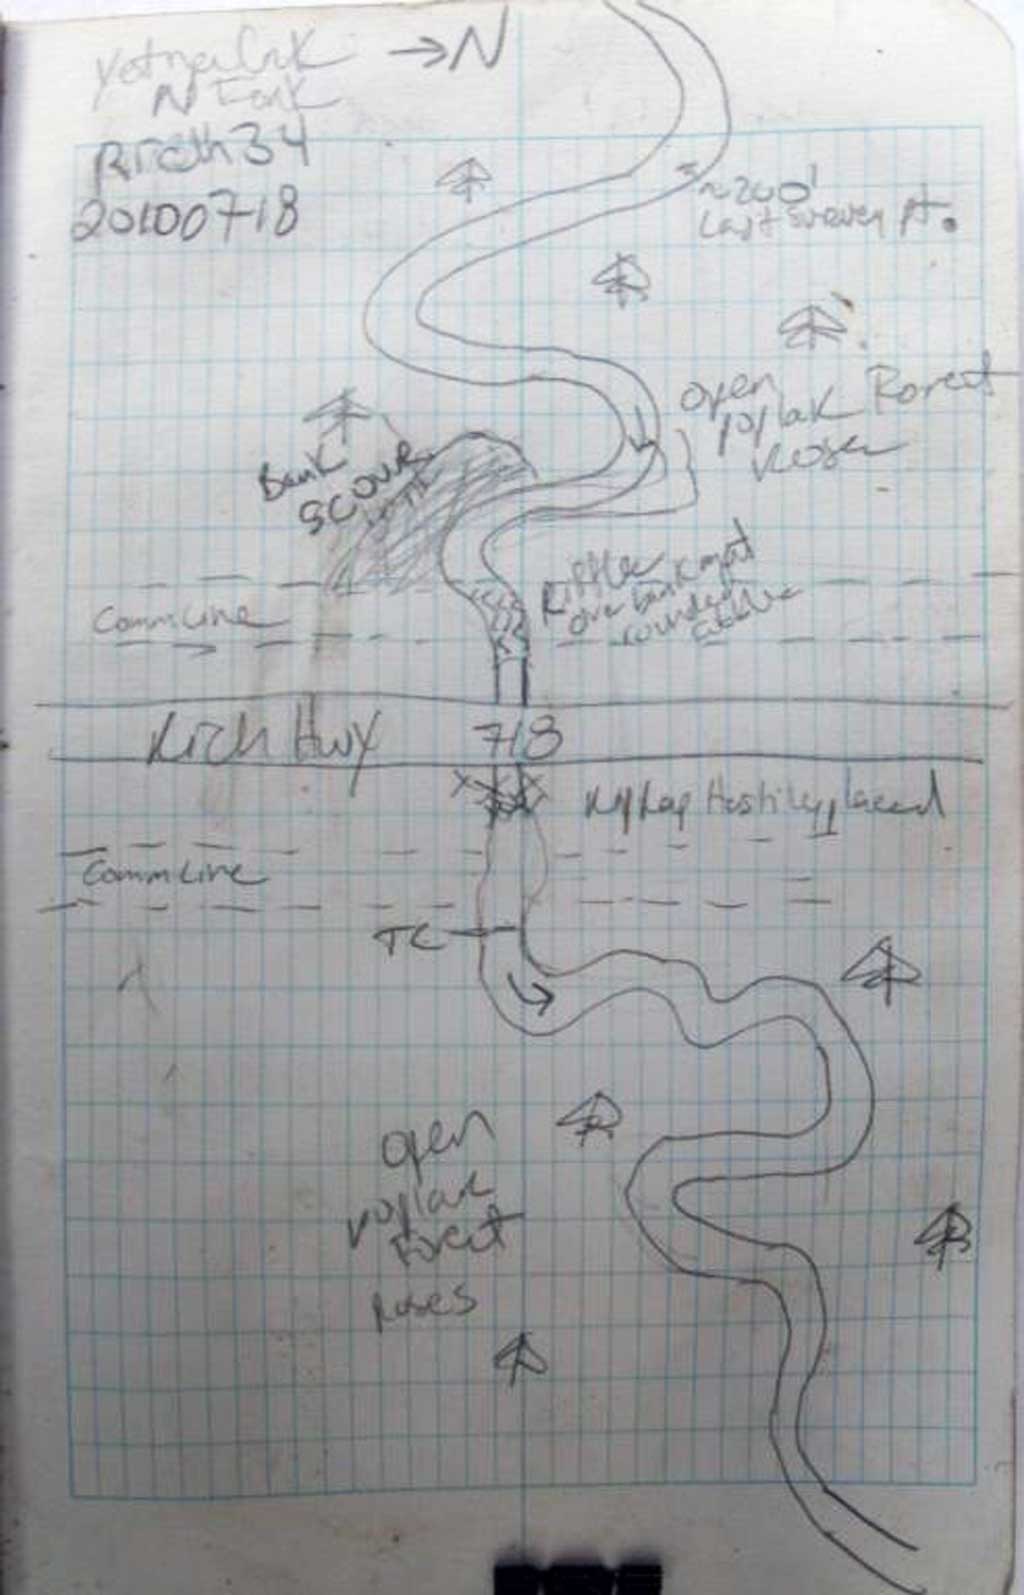 →N
N Fork
Rrich34
20100718
~200'
Last Survey pt.
Open
poplar Forest
Rose
Bank
SCOUR
Riffle
over bankment
rounded
cobble
CommLine
Rich Hwy
718
RipRap Hastily placed
CommLine
TC
Open
poplar
Forest
Roses